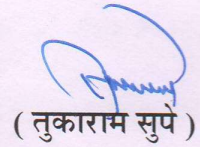 ( तुकाराम सुपे )